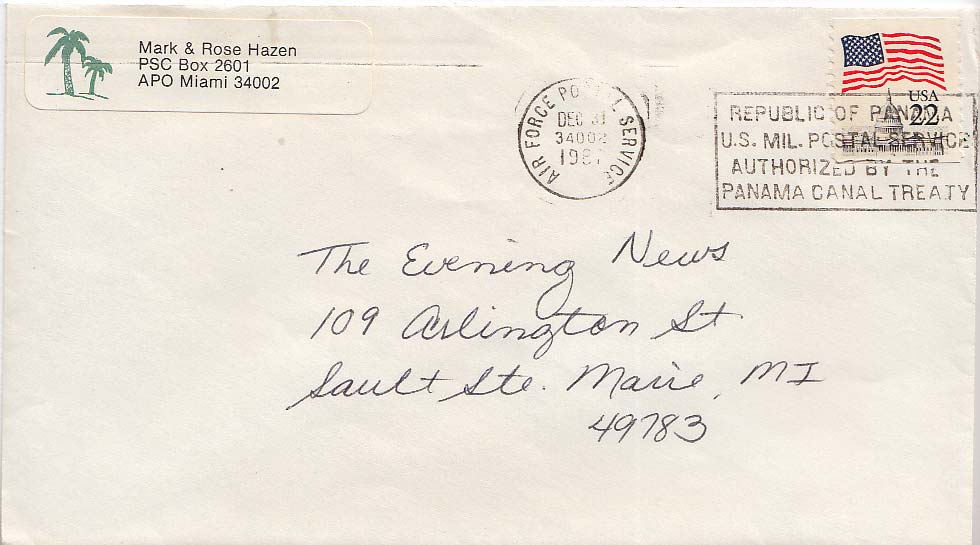 Mark & Rose Hazen
PSC Box 2601
APO Miami 34002
AIR FORCE POSTAL SERVICE
DEC 31
34002
1987
USA
22
REPUBLIC OF PANAMA
U.S. MIL. POSTAL SERVICE
AUTHORIZED BY THE
PANAMA CANAL TREATY
The Evening News
109 Arlington St
Sault Ste. Marie, MI
49783